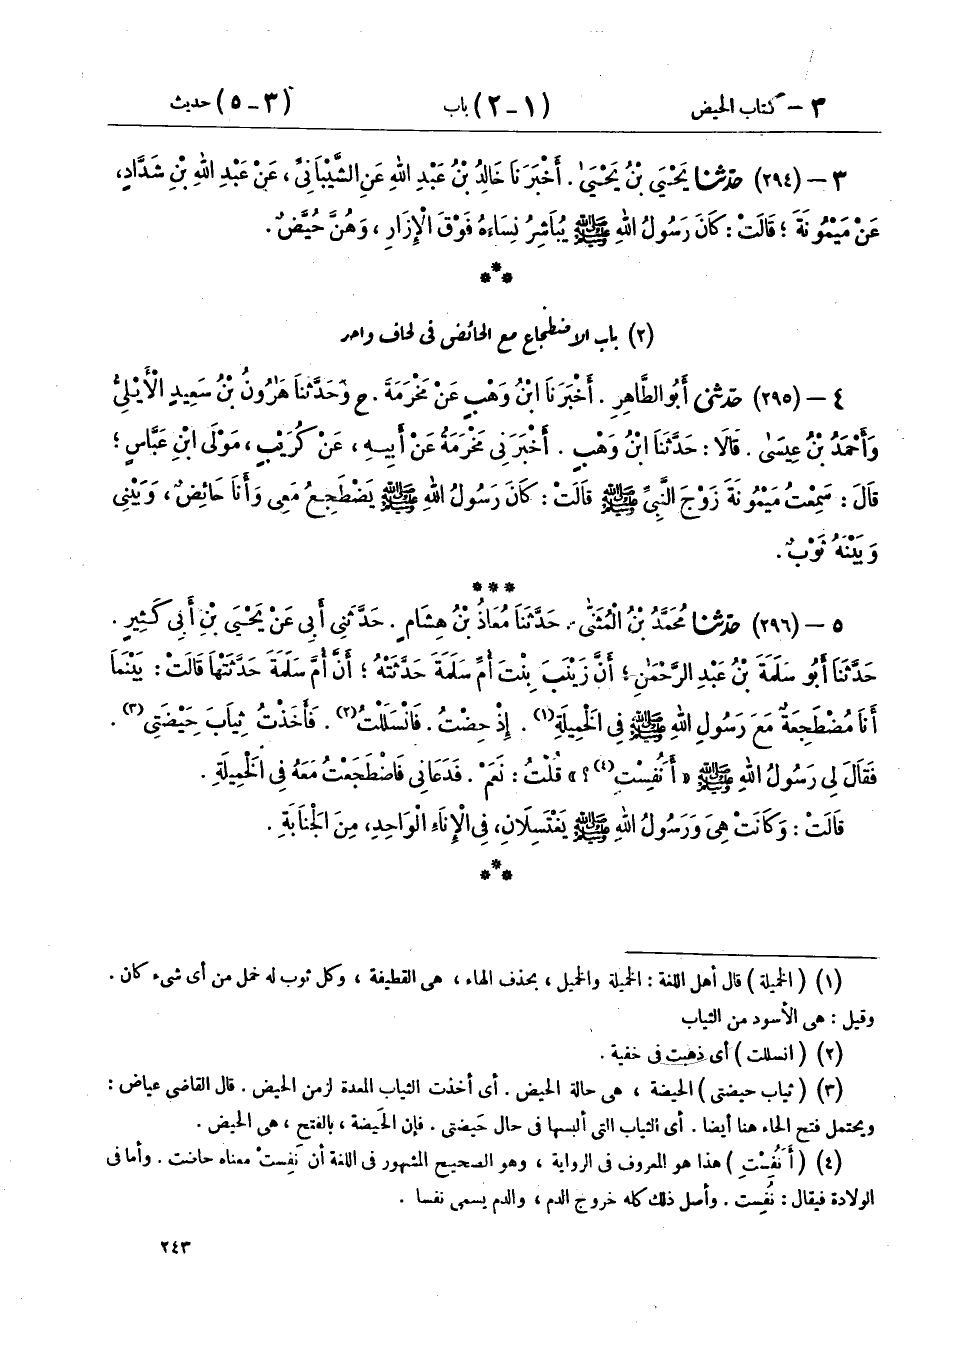 ٣ – كتاب الحيض (١ – ٢) باب (٣ – ٥) حديث
٣ – (٢٩٤) حدثنا يَحْيَى بْنُ يَحْيَىٰ . أَخْبَرَنَا خَالِدُ بْنُ عَبْدِ اللهِ عَنِ الشَّيْبَانِيِّ ، عَنْ عَبْدِ اللهِ بْنِ شَدَّادٍ ،
عَنْ مَيْمُونَةَ ؛ قَالَتْ : كَانَ رَسُولُ اللهِ ﷺ يُبَاشِرُ نِسَاءَهُ فَوْقَ الْإِزَارِ ، وَهُنَّ حُيَّضٌ .
***
(٢) باب الاضطجاع مع الحائض فى لحاف واحد
٤ – (٢٩٥) حدثنى أَبُو الطَّاهِرِ . أَخْبَرَنَا ابْنُ وَهْبٍ عَنْ مَخْرَمَةَ . ح وَحَدَّثَنَا هَارُونُ بْنُ سَعِيدٍ الْأَيْلِيُّ
وَأَحْمَدُ بْنُ عِيسَىٰ . قَالَا : حَدَّثَنَا ابْنُ وَهْبٍ . أَخْبَرَنِي مَخْرَمَةُ عَنْ أَبِيهِ ، عَنْ كُرَيْبٍ ، مَوْلَى ابْنِ عَبَّاسٍ ؛
قَالَ : سَمِعْتُ مَيْمُونَةَ زَوْجَ النَّبِيِّ ﷺ قَالَتْ : كَانَ رَسُولُ اللهِ ﷺ يَضْطَجِعُ مَعِي وَأَنَا حَائِضٌ ، وَبَيْنِي
وَبَيْنَهُ ثَوْبٌ .
***
٥ – (٢٩٦) حدثنا مُحَمَّدُ بْنُ الْمُثَنَّىٰ . حَدَّثَنَا مُعَاذُ بْنُ هِشَامٍ . حَدَّثَنِي أَبِي عَنْ يَحْيَى بْنِ أَبِي كَثِيرٍ .
حَدَّثَنَا أَبُو سَلَمَةَ بْنُ عَبْدِ الرَّحْمَٰنِ ؛ أَنَّ زَيْنَبَ بِنْتَ أُمِّ سَلَمَةَ حَدَّثَتْهُ ؛ أَنَّ أُمَّ سَلَمَةَ حَدَّثَتْهَا قَالَتْ : بَيْنَمَا
أَنَا مُضْطَجِعَةٌ مَعَ رَسُولِ اللهِ ﷺ فِي الْخَمِيلَةِ (١) . إِذْ حِضْتُ . فَانْسَلَلْتُ (٢) . فَأَخَذْتُ ثِيَابَ حِيضَتِي (٣) .
فَقَالَ لِي رَسُولُ اللهِ ﷺ « أَنَفِسْتِ (٤) ؟ » قُلْتُ : نَعَمْ . فَدَعَانِي فَاضْطَجَعْتُ مَعَهُ فِي الْخَمِيلَةِ .
قَالَتْ : وَكَانَتْ هِيَ وَرَسُولُ اللهِ ﷺ يَغْتَسِلَانِ ، فِي الْإِنَاءِ الْوَاحِدِ ، مِنَ الْجَنَابَةِ .
***
(١) ( الخميلة ) قال أهل اللغة : الخميلة والخميل ، بحذف الهاء ، هى القطيفة ، وكل ثوب له خمل من أى شىء كان .
وقيل : هى الأسود من الثياب
(٢) ( انسللت ) أى ذهبت فى خفية .
(٣) ( ثياب حيضتى ) الحيضة ، هى حالة الحيض . أى أخذت الثياب المعدة لزمن الحيض . قال القاضى عياض :
ويحتمل فتح الحاء هنا أيضا . أى الثياب التى ألبسها فى حال حَيضتى . فإن الحَيضة ، بالفتح ، هى الحيض .
(٤) ( أَنَفِسْتِ ) هذا هو المعروف فى الرواية ، وهو الصحيح المشهور فى اللغة أن نَفِستْ معناه حاضت . وأما فى
الولادة فيقال : نُفِست . وأصل ذلك كله خروج الدم ، والدم يسمى نفسا .
٢٤٣